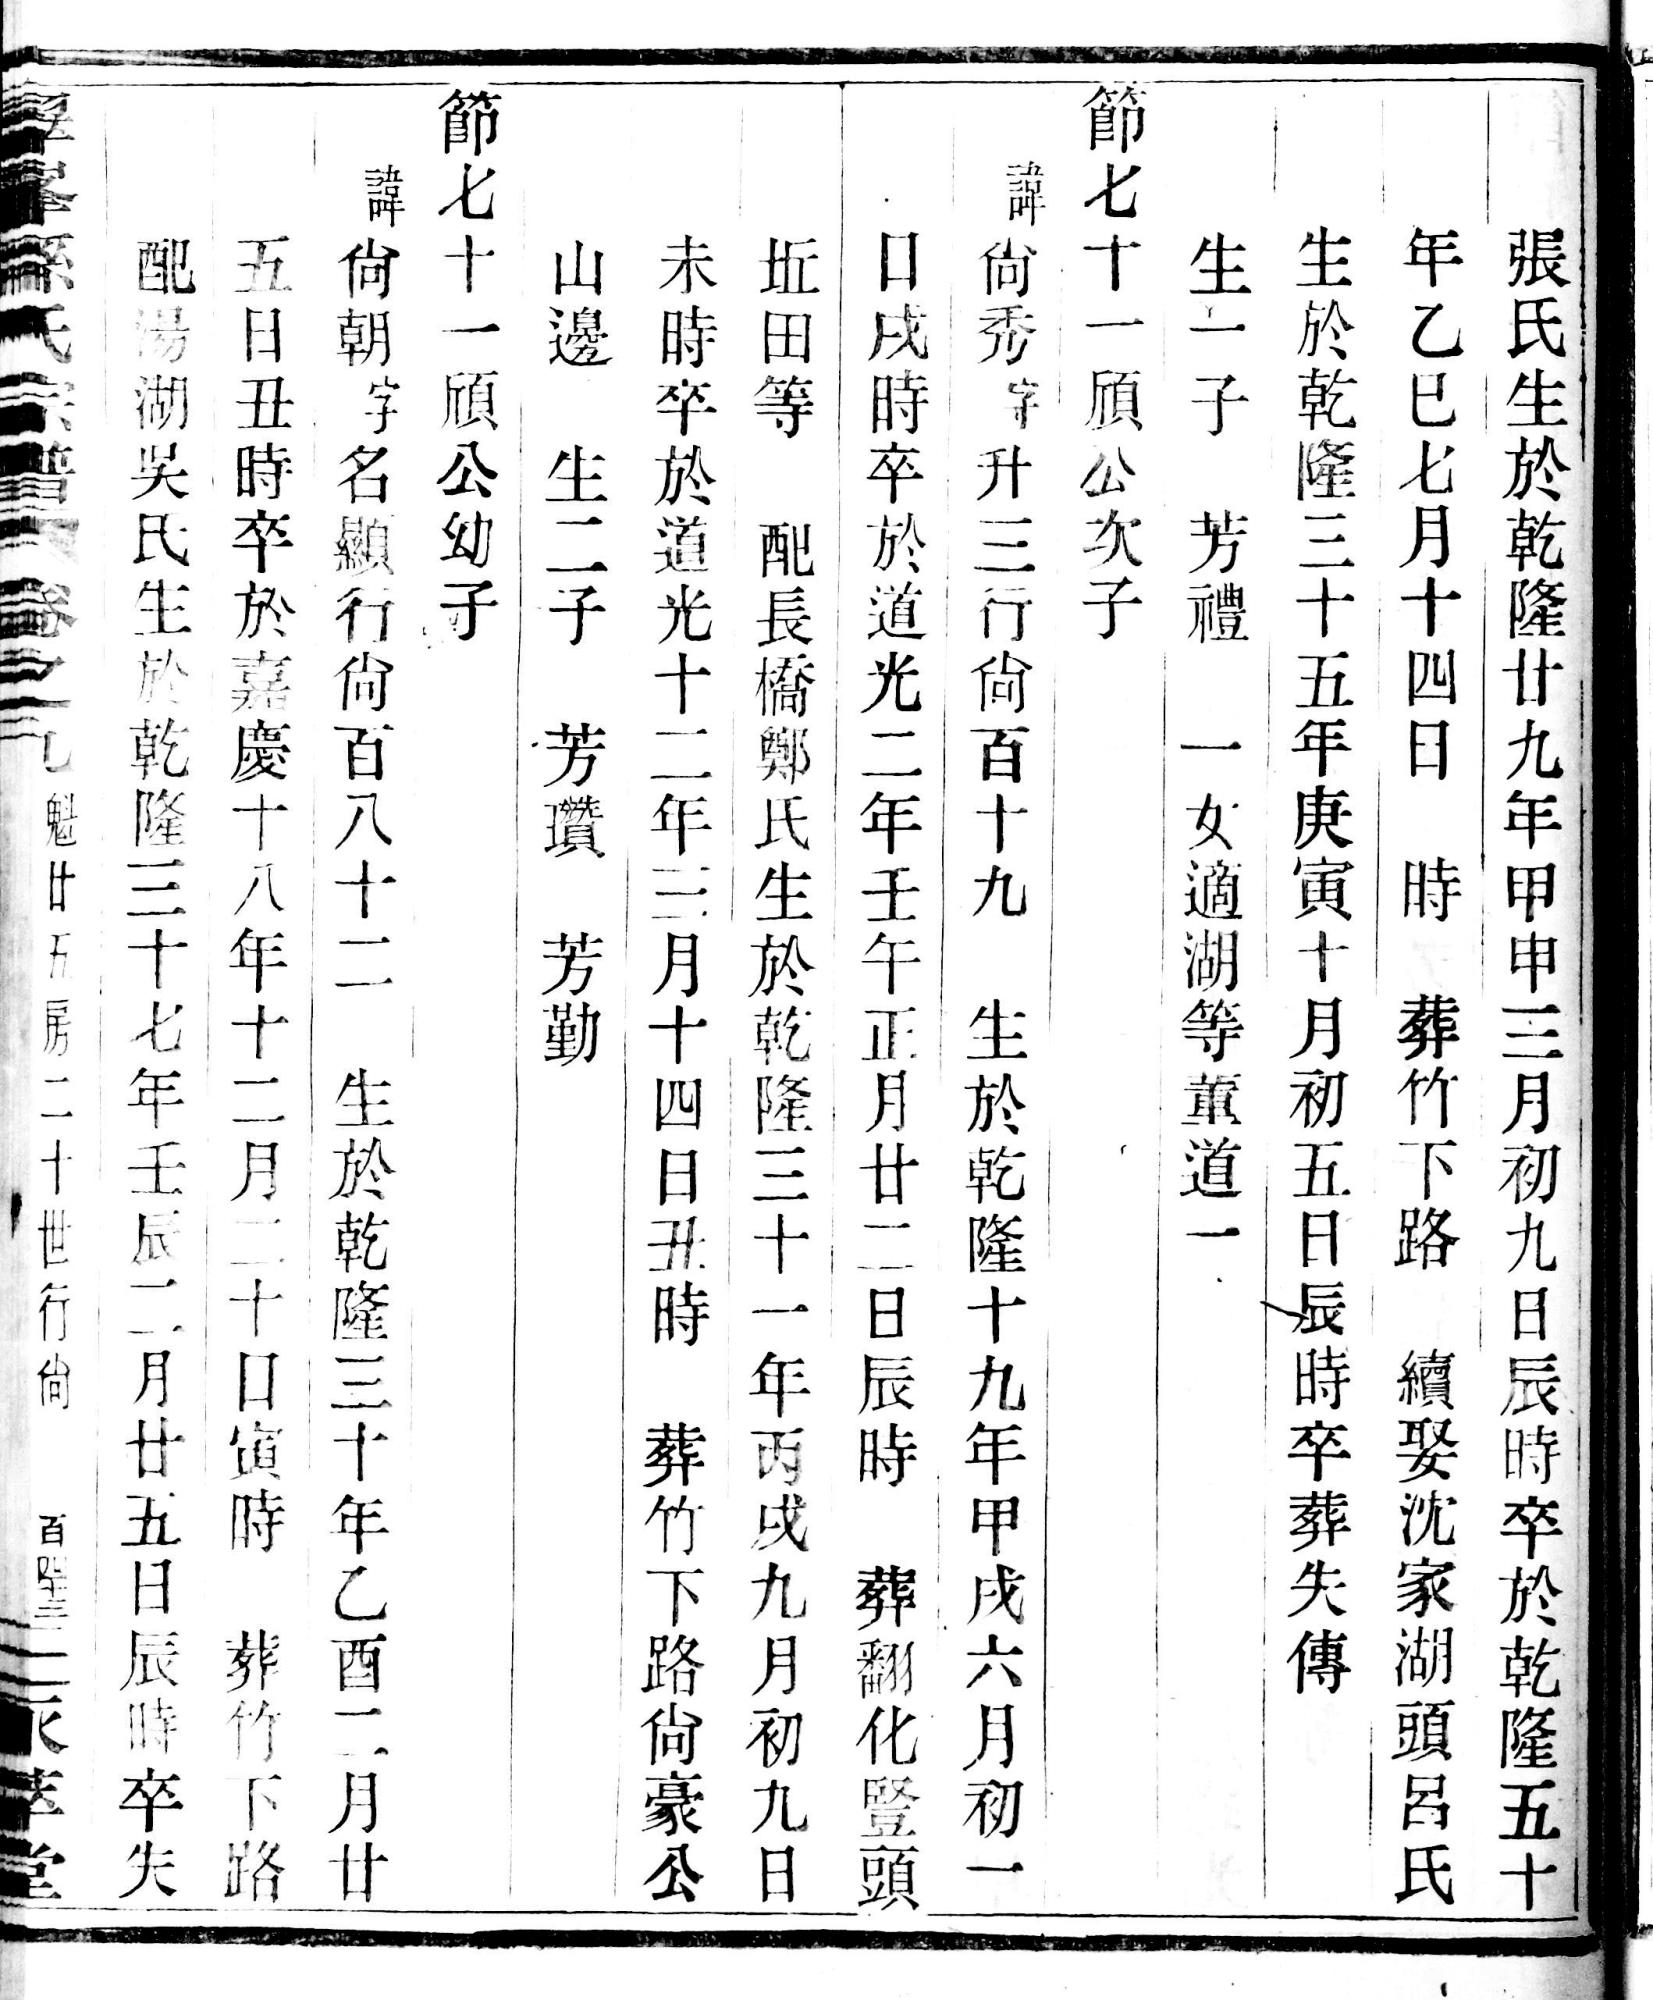 張氏生於乾隆廿九年甲申三月初九日辰時卒於乾隆五十
年乙巳七月十四日　時　葬竹下路　續娶沈家湖頭呂氏
生於乾隆三十五年庚寅十月初五日辰時卒葬失傳
生一子　芳禮　一女適湖等董道一
節七十一頎公次子
諱尙秀字升三行尙百十九　生於乾隆十九年甲戌六月初一
日戌時卒於道光二年壬午正月廿二日辰時　葬翻化豎頭
坵田等　配長橋鄭氏生於乾隆三十一年丙戌九月初九日
未時卒於道光十二年三月十四日丑時　葬竹下路尙豪公
山邊　生二子　芳瓚　芳勤
節七十一頎公幼子
諱尙朝字名顯行尙百八十二　生於乾隆三十年乙酉二月廿
五日丑時卒於嘉慶十八年十二月二十日寅時　葬竹下路
配湯湖吳氏生於乾隆三十七年壬辰二月廿五日辰時卒失
孫氏宗譜　卷之九　魁廿五房二十世行尙　百　萃堂